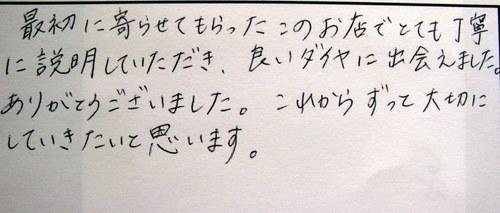 最初に寄らせてもらったこのお店でとても丁寧
に説明していただき、良いダイヤに出会えました。
ありがとうございました。これからずって大切に
していきたいと思います。